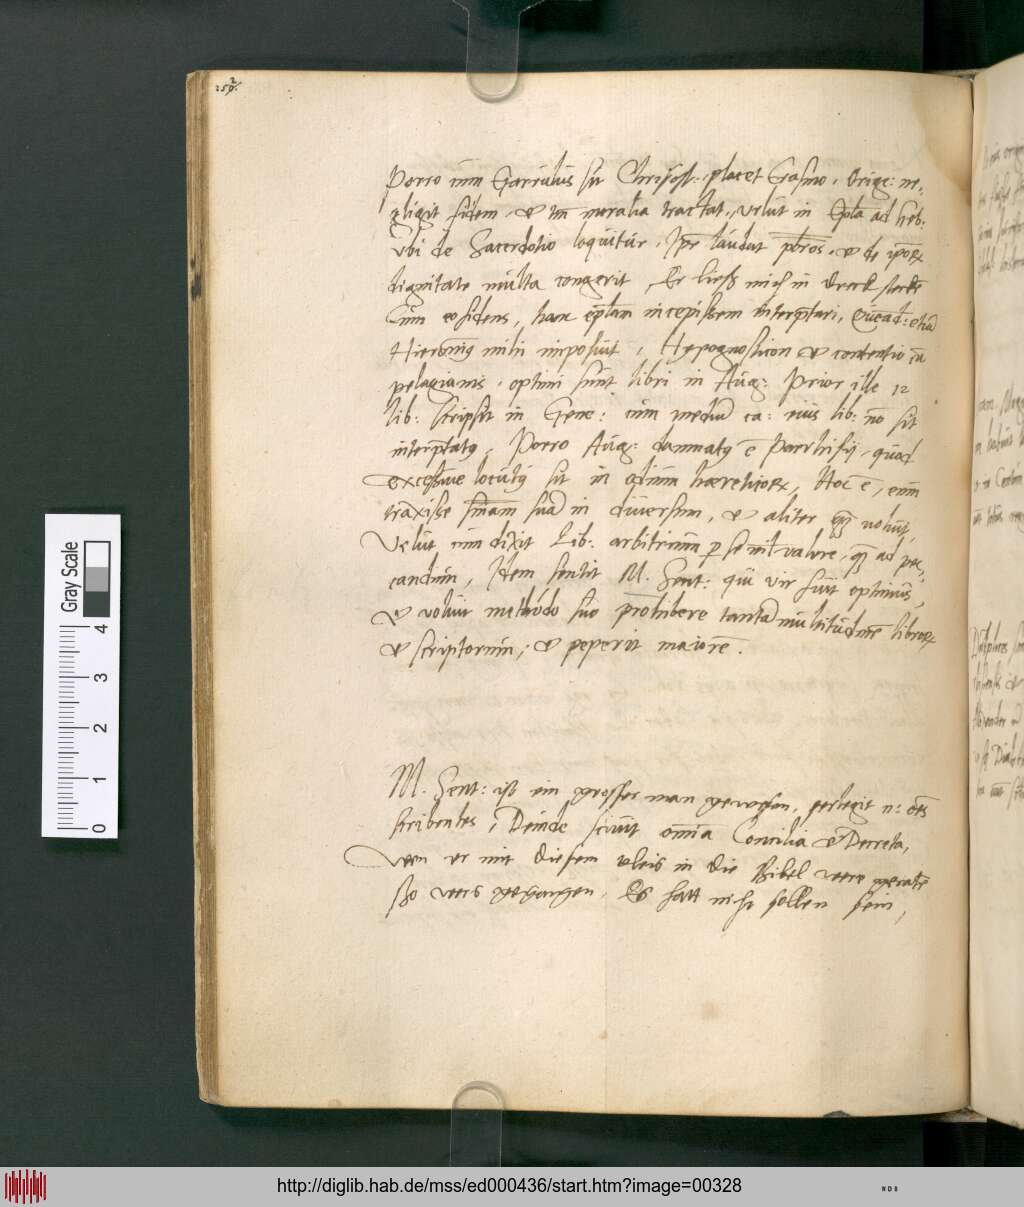 Porro cum Garrulus sit Chrisost: placet Erasmo. Orige: ne-
gligit fidem, et tm moralia tractat, velut in Epla ad heb:
Vbi de Sacerdotio loquitur. Ipse laudat pbros, et de ipoꝝ
dignitate multa congerit, Er ließ mich in dreck stecke
Cum eo fidens, hanc eplam incepissem interptari, etiā
Hieronimꝰ mihi imposuit, Hypognosticon et contentio cū
pelagianis. optimi sunt libri in Aug: Prior ille 12
lib: scripsit in Gene: cum mediū ca: eius lib: nō sit
interptatꝰ, Porro Aug: damnatꝰ ē Parrhisijs, quod
excessiue locutꝰ sit in odium haereticoꝝ, Hoc ē, eum
traxisse snīam suā in diuersum, et aliter voluit,
Velut cum dixit Lib: arbitrium per se nil valere, ad pec-
candum, Idem sentit M. Sent: qui vir fuit optimus,
et voluit methodo suo prohibere tantā multitudinē libroꝝ
et scriptorum, et peperit maiorē.
M. Sent: ist ein grosser man gewesen, perlegit n: oēs
scribentes, Deinde sciuit omnia Concilia et Decreta,
Wen er mit diesem vleis in die Bibel were geratē
ßo wers gegangen. Es hatt nicht sollen sein,
Gray Scale
4
3
2
1
0
http://diglib.hab.de/mss/ed000436/start.htm?image=00328